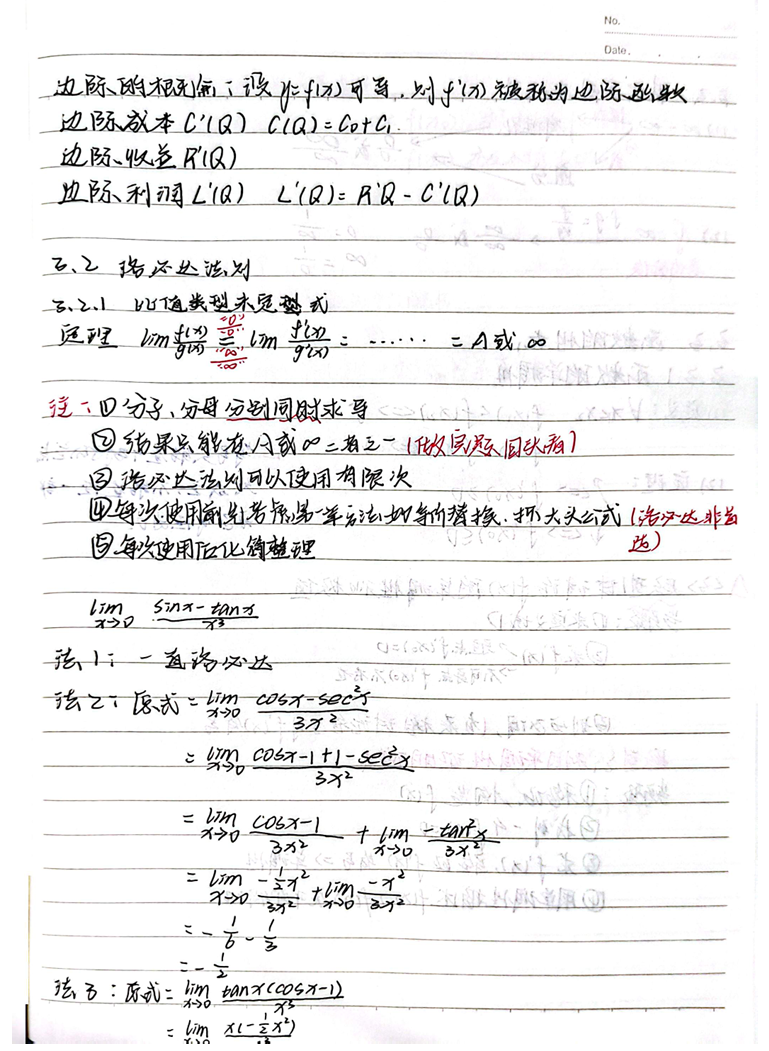 No.
Date.
边际的概念:设y=f(x)可导,则f'(x)被称为边际函数
边际成本C'(Q) C(Q)=C₀+C₁
边际收益R'(Q)
边际利润L'(Q) L'(Q)=R'Q-C'(Q)
3.2 洛必达法则
3.2.1 比值类型未定型式
定理 lim f(x)/g(x) "0"/"0" = "∞"/"∞" lim f'(x)/g'(x) = …… = A或∞
注:①分子、分母分别同时求导
②结果只能在A或∞二者之一(做完题回头看)
③洛必达法则可以使用有限次
④每次使用前先考虑第一章方法如等价替换、抓大头公式(洛必达非首选)
⑤每次使用后化简整理
lim x→0 (sinx-tanx)/x³
法1:一直洛必达
法2:原式=lim x→0 (cosx-sec²x)/3x²
=lim x→0 (cosx-1+1-sec²x)/3x²
=lim x→0 (cosx-1)/3x² + lim x→0 (-tan²x)/3x²
=lim x→0 (-1/2x²)/3x² + lim x→0 (-x²)/3x²
=-1/6-1/3
=-1/2
法3:原式=lim x→0 tanx(cosx-1)/x³
=lim x→0 x(-1/2x²)/x³